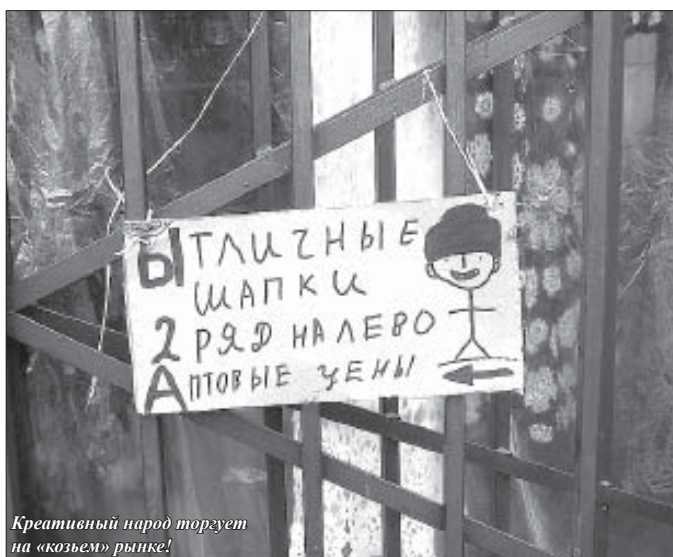 Ы ТЛИЧНЫЕ
ШАПКИ
2 РЯД НАЛЕВО
АПТОВЫЕ ЦЕНЫ
Креативный народ торгует
на «козьем» рынке!